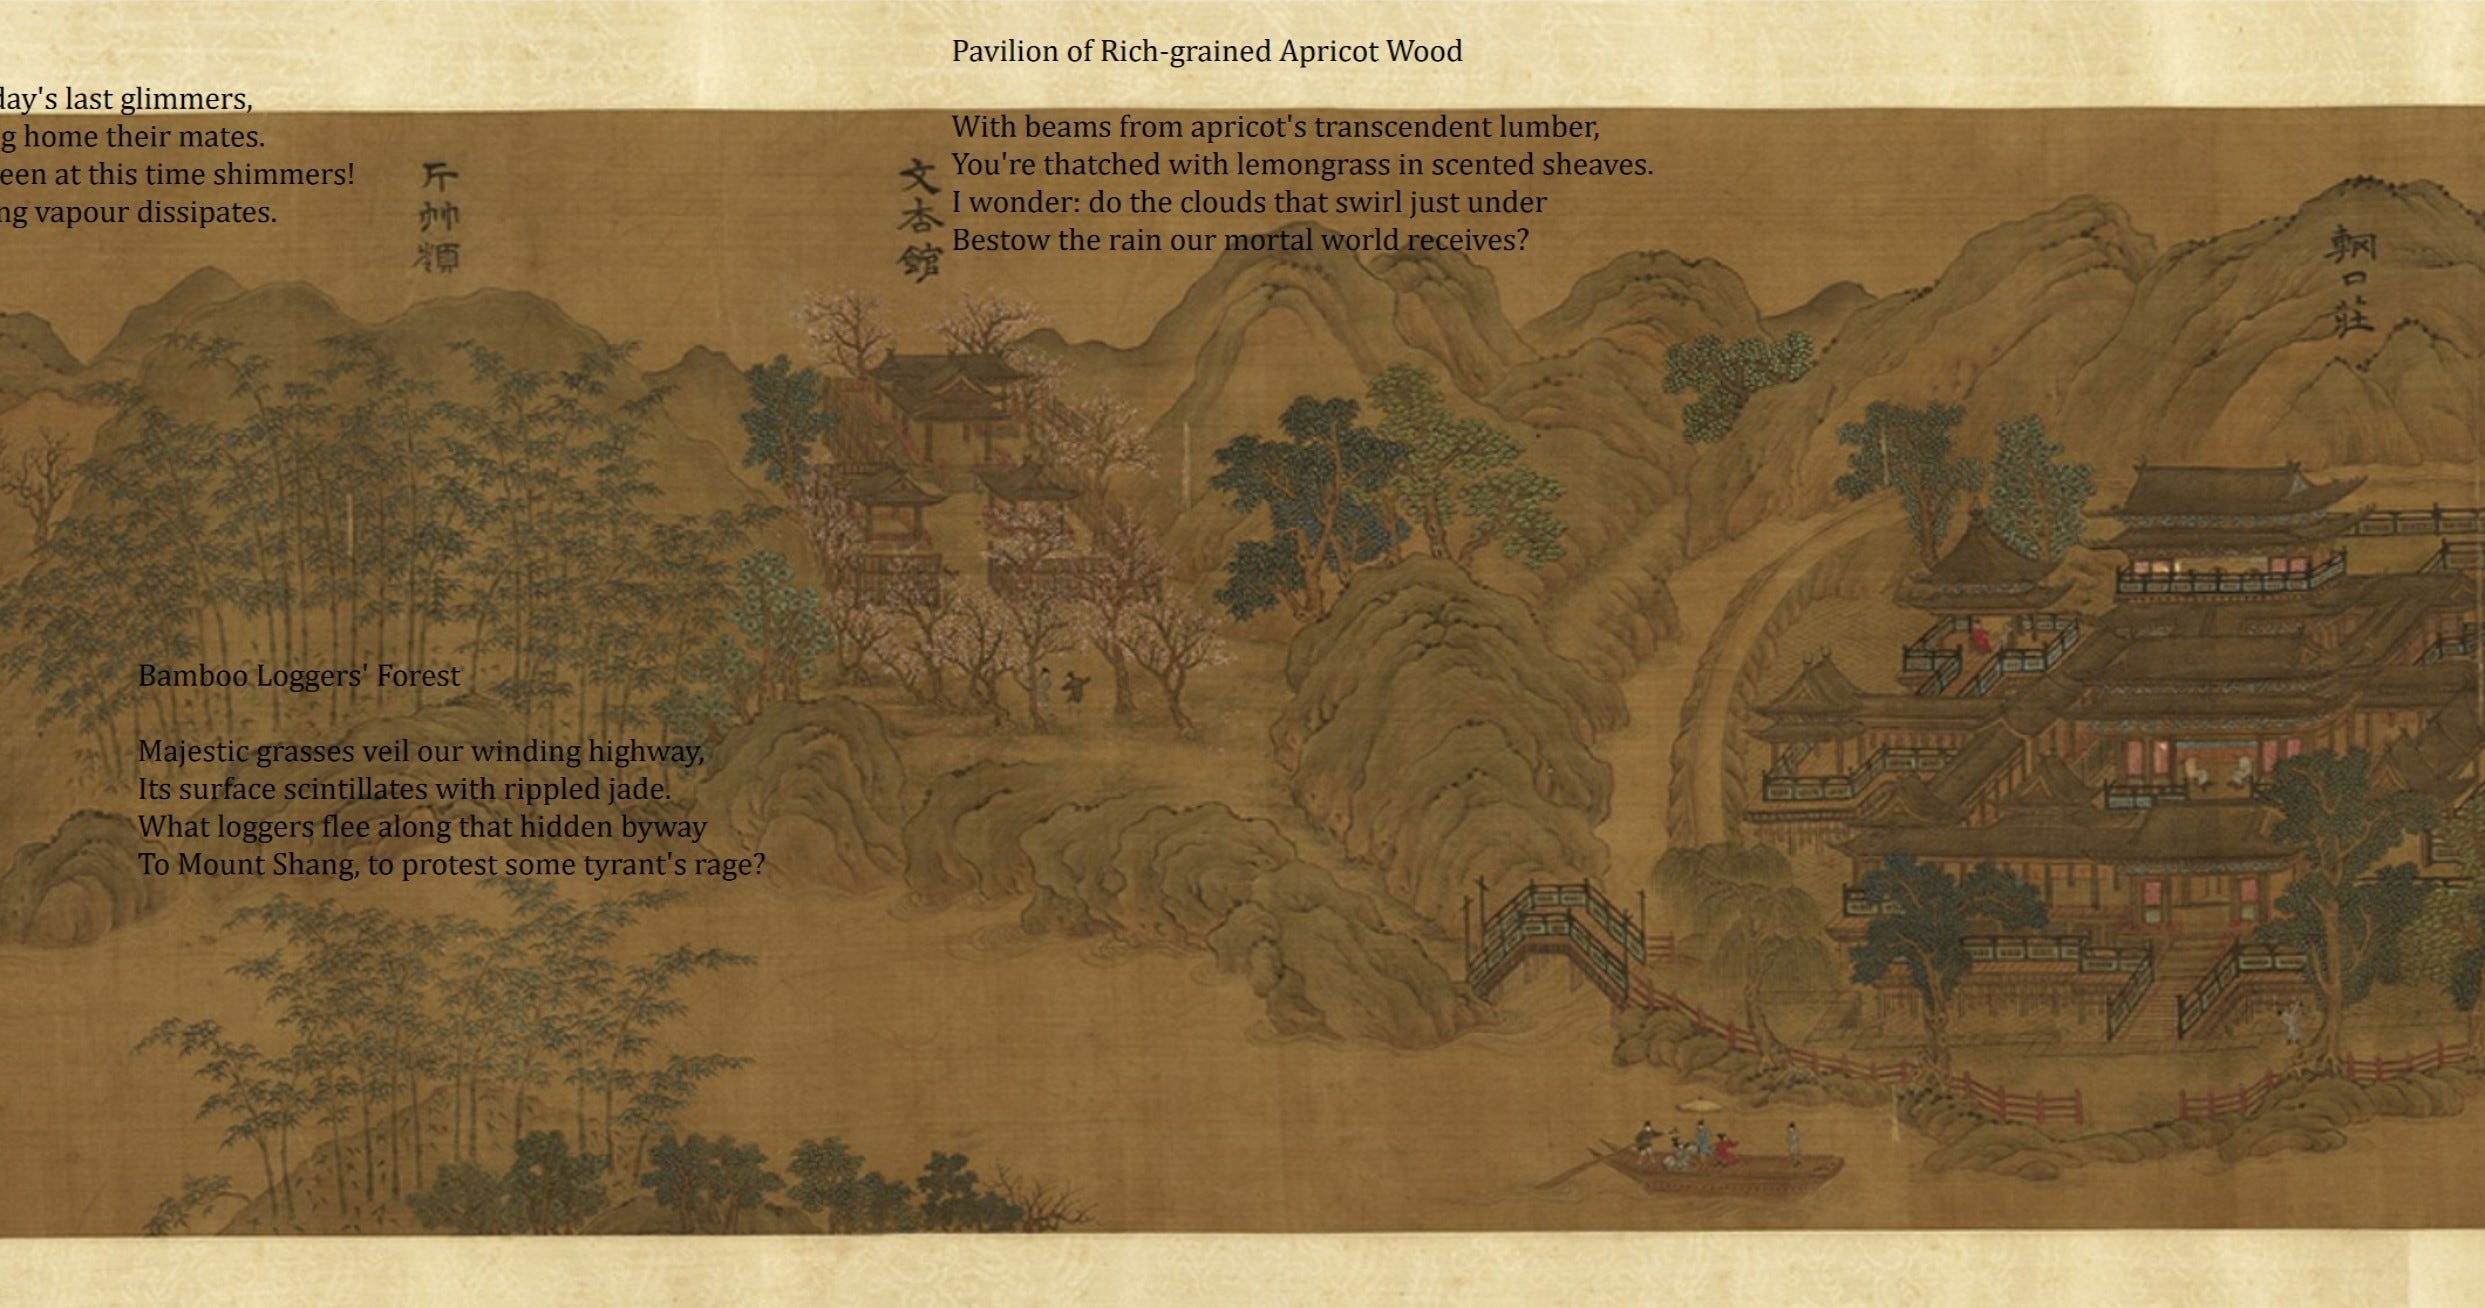 Pavilion of Rich-grained Apricot Wood
With beams from apricot's transcendent lumber,
You're thatched with lemongrass in scented sheaves.
I wonder: do the clouds that swirl just under
Bestow the rain our mortal world receives?
day's last glimmers,
g home their mates.
een at this time shimmers!
ng vapour dissipates.
輞口莊
文杏館
斤竹嶺
Bamboo Loggers' Forest
Majestic grasses veil our winding highway,
Its surface scintillates with rippled jade.
What loggers flee along that hidden byway
To Mount Shang, to protest some tyrant's rage?